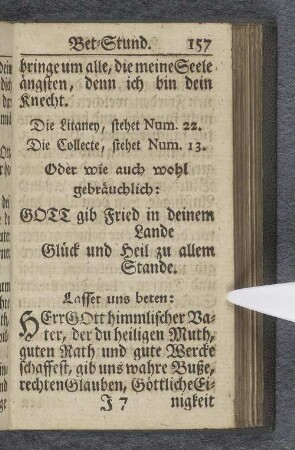 Bet-Stund. 157
bringe um alle, die meine Seele
ängsten, denn ich bin dein
Knecht.
Die Litaney, stehet Num. 22.
Die Collecte, stehet Num. 13.
Oder wie auch wohl
gebräuchlich:
GOTT gib Fried in deinem
Lande
Glück und Heil zu allem
Stande.
Lasset uns beten:
HErr GOtt himmlischer Va-
ter, der du heiligen Muth,
guten Rath und gute Wercke
schaffest, gib uns wahre Buße,
rechten Glauben, Göttliche Ei-
J 7 nigkeit